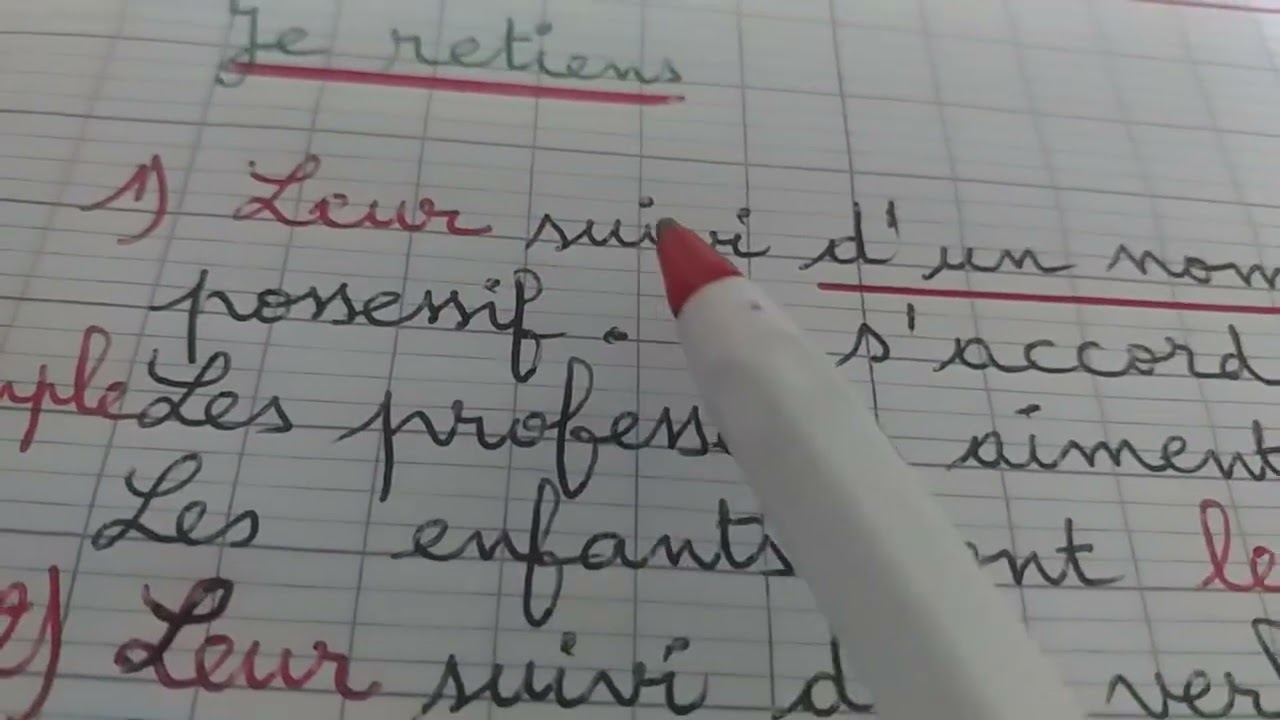 Je retiens
1) Leur suivi d'un nom
possessif. s'accord
mple Les profess aiment
Les enfants nt le
2) Leur suivi d ver